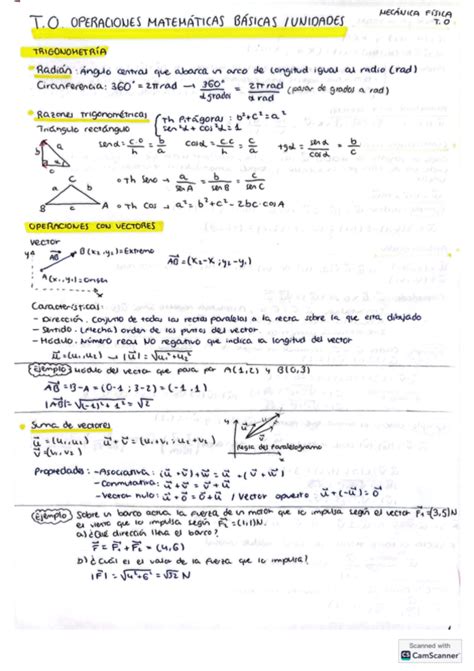 MECÁNICA FÍSICA
T.O
T.O. OPERACIONES MATEMÁTICAS BÁSICAS / UNIDADES
TRIGONOMETRÍA
• Radián: Ángulo central que abarca un arco de longitud igual al radio (rad)
Circunferencia: 360° = 2πrad → 360°/α grados = 2πrad/α rad (pasar de grados a rad)
• Razones trigonométricas { Th Pitágoras: b²+c²=a²
sen²α + cos²α = 1
Triángulo rectángulo
senα = c.o/h = b/a cosα = c.c/h = c/a tgα = senα/cosα = b/c
• Th Seno → a/sen A = b/sen B = c/sen C
• Th cos → a² = b² + c² - 2bc·cosA
OPERACIONES CON VECTORES
Vector
B(x₂,y₂)=Extremo
AB = (x₂-x₁; y₂-y₁)
A(x₁,y₁)=Origen
Características:
- Dirección. Conjunto de todas las rectas paralelas a la recta sobre la que está dibujado
- Sentido. (flecha) orden de los puntos del vector
- Módulo. Número real NO negativo que indica la longitud del vector
u = (u₁,u₂) → |u| = √u₁²+u₂²
Ejemplo) Módulo del vector que pasa por A(1,2) y B(0,3)
AB = B-A = (0-1; 3-2) = (-1,1)
|AB| = √(-1)²+1² = √2
• Suma de vectores
u = (u₁,u₂) u+v = (u₁+v₁; u₂+v₂)
v = (v₁,v₂)
Regla del Paralelogramo
Propiedades: - Asociativa: (u+v)+w = u+(v+w)
- Conmutativa: u+v = v+u
- Vector nulo: u+0 = 0+u / Vector opuesto: u+(-u)=0
Ejemplo) Sobre un barco actúa la fuerza de un motor que lo impulsa según el vector F₁=(3,5)N
el viento que lo impulsa según F₂=(1,1)N.
a) ¿Qué dirección lleva el barco?
F = F₁+F₂ = (4,6)
b) ¿Cuál es el valor de la fuerza que lo impulsa?
|F| = √4²+6² = √52 N
Scanned with
CS CamScanner